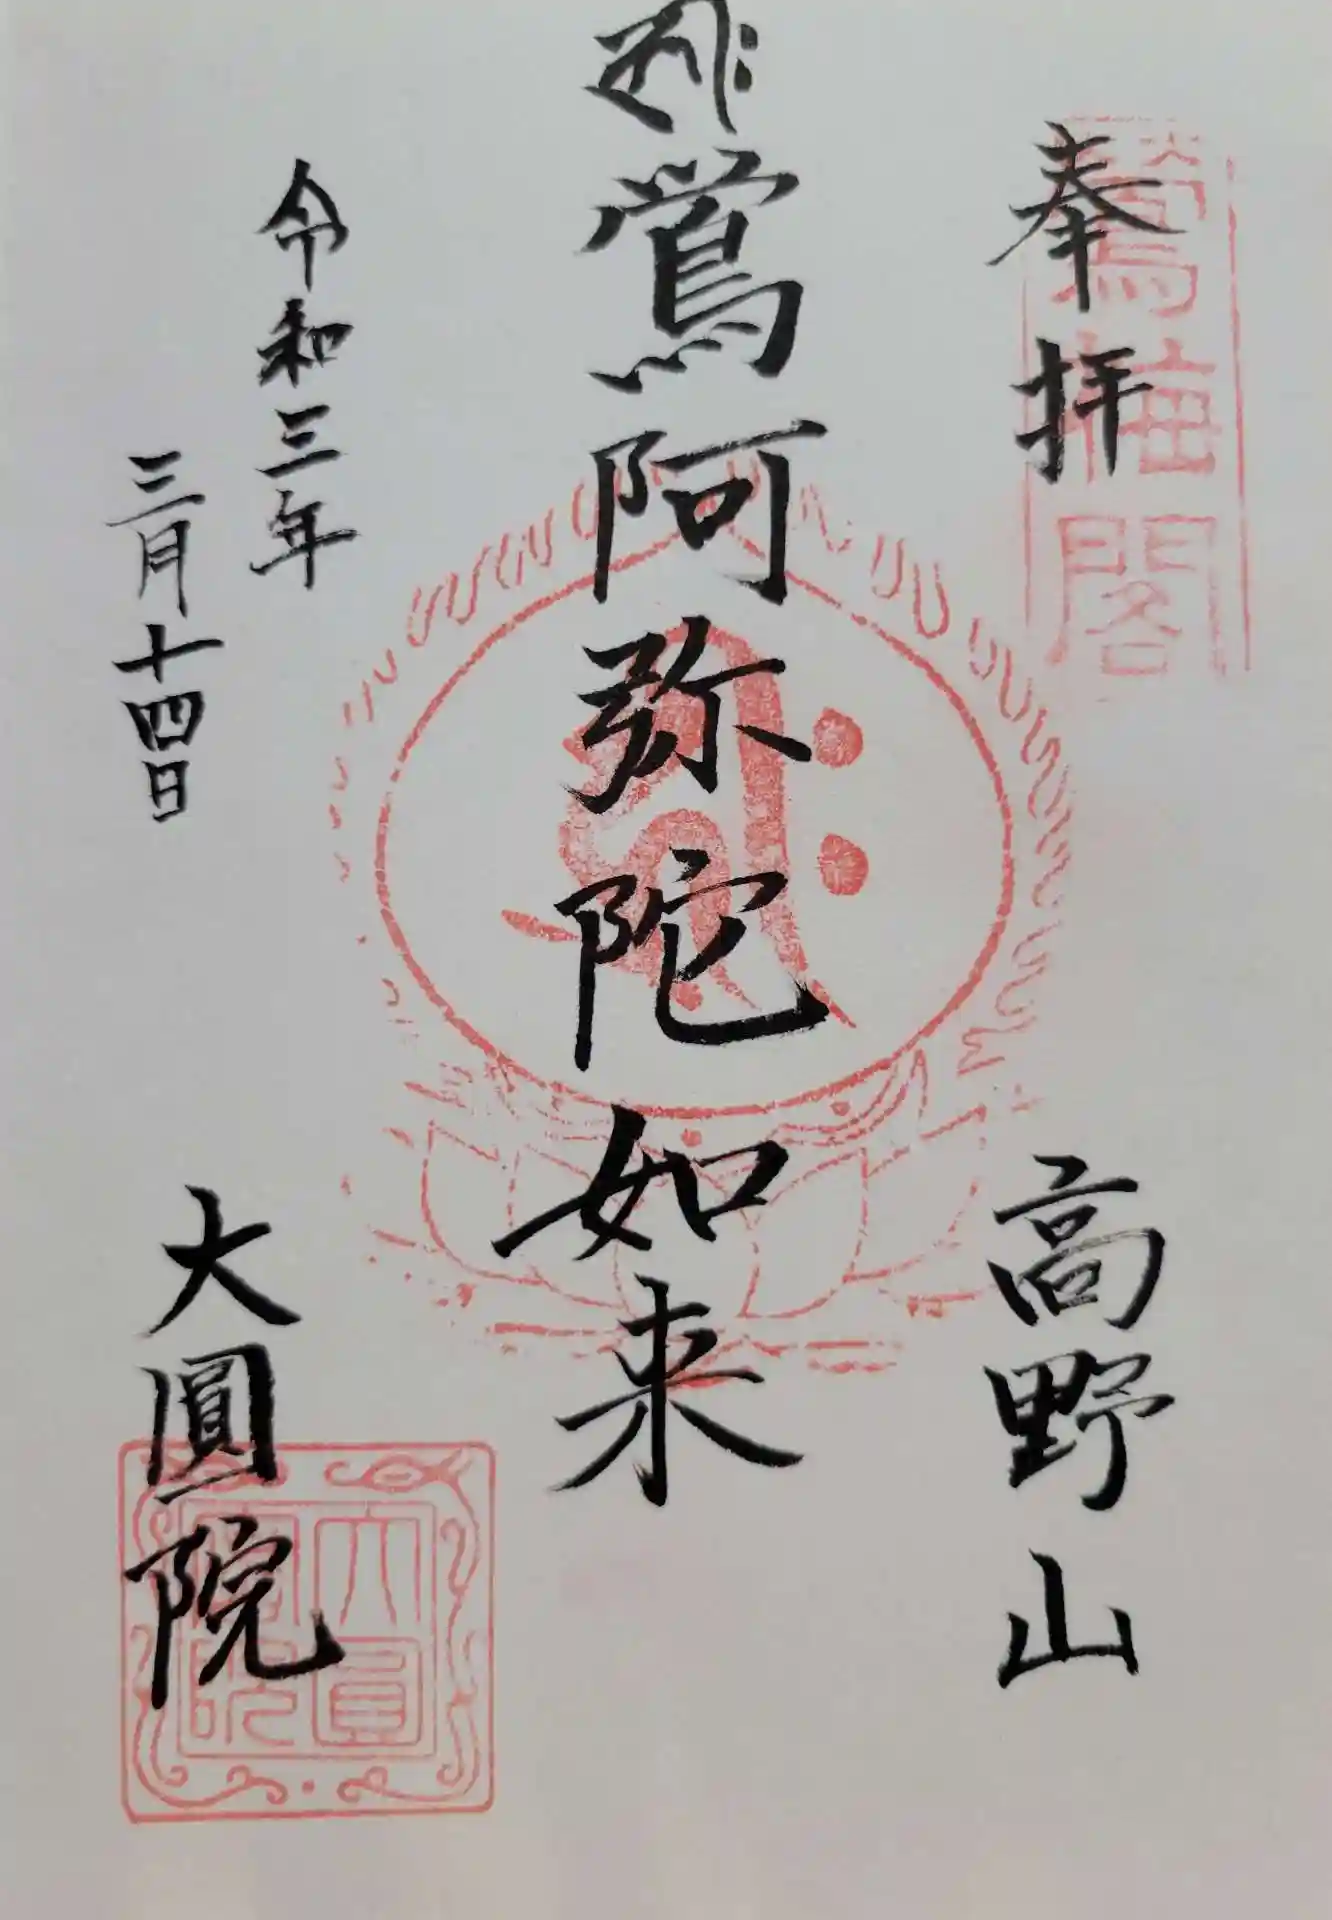 奉拝
鶯梅閣
高野山
𑖮𑖿𑖨𑖱𑖾
鶯阿弥陀如来
令和三年
三月十四日
大圓院
大圓院寳